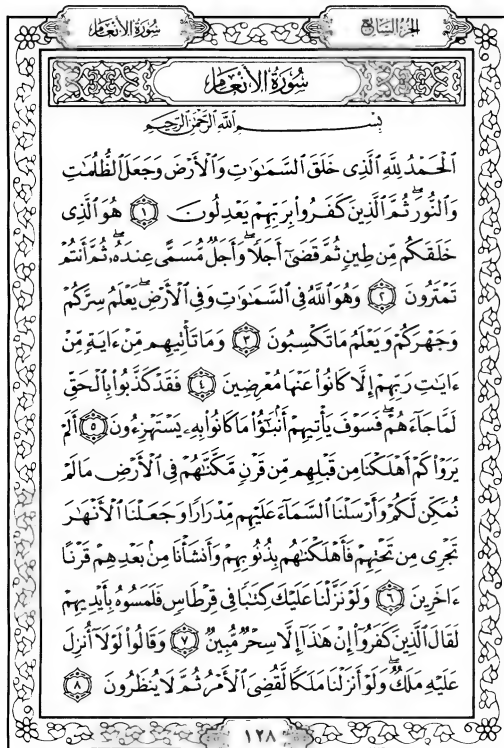 الجزء السابع
سُورَةُ الأَنْعَامِ
سُورَةُ الأَنْعَامِ
بِسْمِ اللَّهِ الرَّحْمَٰنِ الرَّحِيمِ
ٱلْحَمْدُ لِلَّهِ ٱلَّذِى خَلَقَ ٱلسَّمَٰوَٰتِ وَٱلْأَرْضَ وَجَعَلَ ٱلظُّلُمَٰتِ
وَٱلنُّورَ ۖ ثُمَّ ٱلَّذِينَ كَفَرُوا۟ بِرَبِّهِمْ يَعْدِلُونَ ١ هُوَ ٱلَّذِى
خَلَقَكُم مِّن طِينٍ ثُمَّ قَضَىٰٓ أَجَلًا ۖ وَأَجَلٌ مُّسَمًّى عِندَهُۥ ۖ ثُمَّ أَنتُمْ
تَمْتَرُونَ ٢ وَهُوَ ٱللَّهُ فِى ٱلسَّمَٰوَٰتِ وَفِى ٱلْأَرْضِ ۖ يَعْلَمُ سِرَّكُمْ
وَجَهْرَكُمْ وَيَعْلَمُ مَا تَكْسِبُونَ ٣ وَمَا تَأْتِيهِم مِّنْ ءَايَةٍ مِّنْ
ءَايَٰتِ رَبِّهِمْ إِلَّا كَانُوا۟ عَنْهَا مُعْرِضِينَ ٤ فَقَدْ كَذَّبُوا۟ بِٱلْحَقِّ
لَمَّا جَآءَهُمْ ۖ فَسَوْفَ يَأْتِيهِمْ أَنۢبَٰٓؤُا۟ مَا كَانُوا۟ بِهِۦ يَسْتَهْزِءُونَ ٥ أَلَمْ
يَرَوْا۟ كَمْ أَهْلَكْنَا مِن قَبْلِهِم مِّن قَرْنٍ مَّكَّنَّٰهُمْ فِى ٱلْأَرْضِ مَا لَمْ
نُمَكِّن لَّكُمْ وَأَرْسَلْنَا ٱلسَّمَآءَ عَلَيْهِم مِّدْرَارًا وَجَعَلْنَا ٱلْأَنْهَٰرَ
تَجْرِى مِن تَحْتِهِمْ فَأَهْلَكْنَٰهُم بِذُنُوبِهِمْ وَأَنشَأْنَا مِنۢ بَعْدِهِمْ قَرْنًا
ءَاخَرِينَ ٦ وَلَوْ نَزَّلْنَا عَلَيْكَ كِتَٰبًا فِى قِرْطَاسٍ فَلَمَسُوهُ بِأَيْدِيهِمْ
لَقَالَ ٱلَّذِينَ كَفَرُوٓا۟ إِنْ هَٰذَآ إِلَّا سِحْرٌ مُّبِينٌ ٧ وَقَالُوا۟ لَوْلَآ أُنزِلَ
عَلَيْهِ مَلَكٌ ۖ وَلَوْ أَنزَلْنَا مَلَكًا لَّقُضِىَ ٱلْأَمْرُ ثُمَّ لَا يُنظَرُونَ ٨
١٢٨